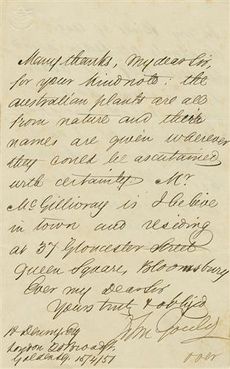 Many thanks, my dear Sir,
for your kind note: the
australian plants are all
from nature and their
names are given wherever
they could be ascertained
with certainty Mr
McGillivray is I believe
in town and residing
at 37 Gloucester Street
Queen Square, Bloomsbury
Ever my dear Sir
Yours truly & oblig'd
John Gould
H Denny Esq
over